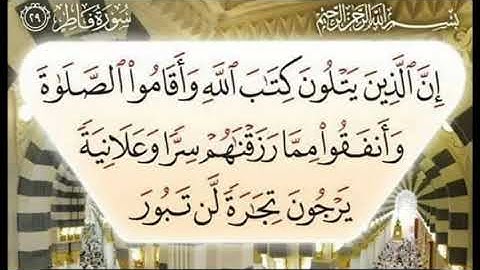 بِسْمِ اللَّهِ الرَّحْمَٰنِ الرَّحِيمِ
سُورَة فَاطِر ٢٩
إِنَّ ٱلَّذِينَ يَتْلُونَ كِتَٰبَ ٱللَّهِ وَأَقَامُوا۟ ٱلصَّلَوٰةَ
وَأَنفَقُوا۟ مِمَّا رَزَقْنَٰهُمْ سِرًّا وَعَلَانِيَةً
يَرْجُونَ تِجَٰرَةً لَّن تَبُورَ